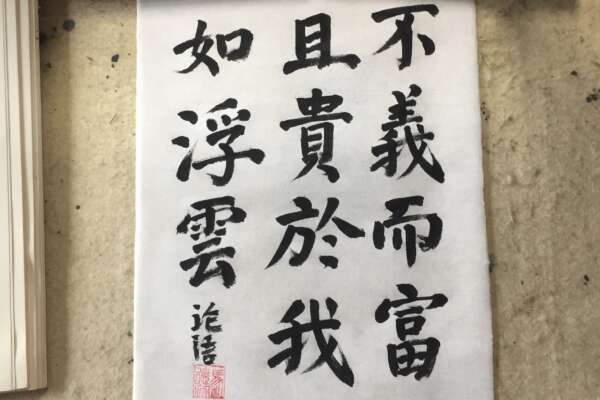 不義而富
且貴於我
如浮雲
论语